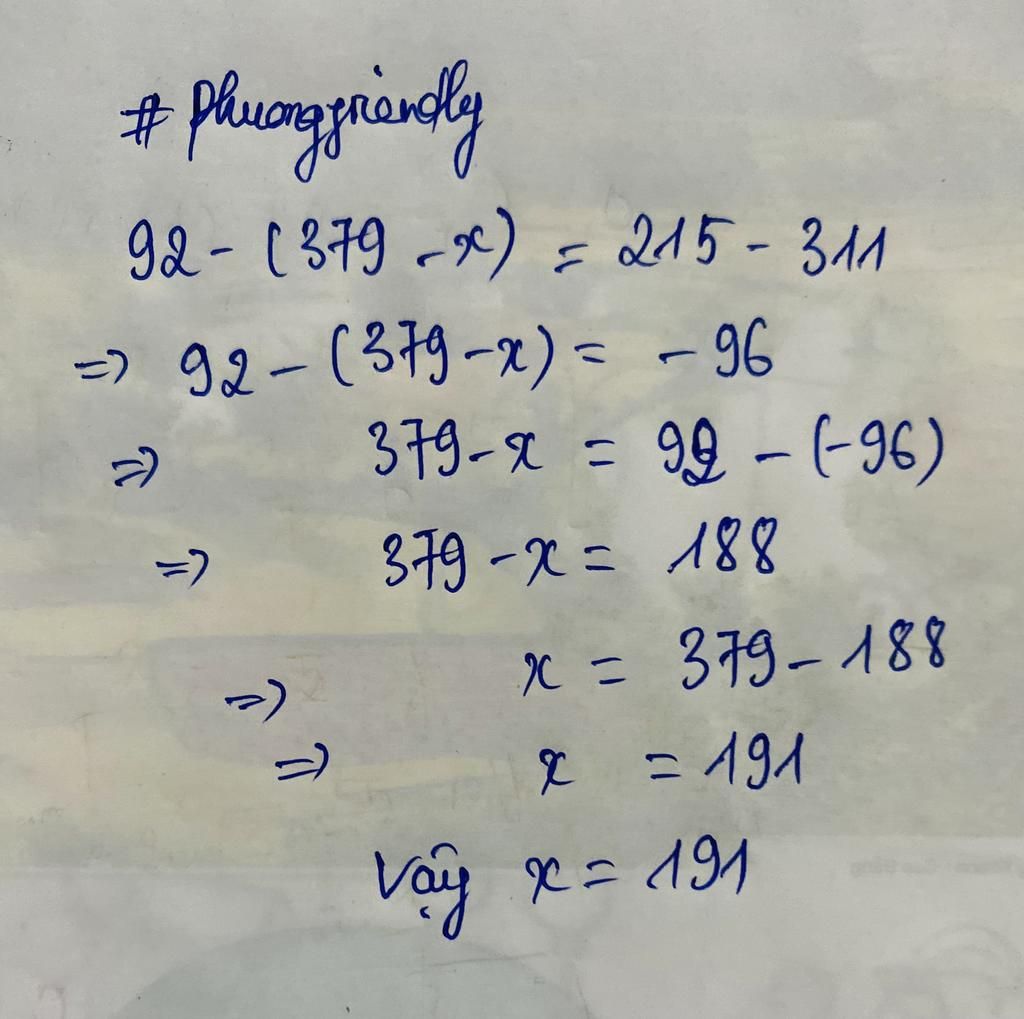 # Phuongfriendly
92 - (379 - x) = 215 - 311
=> 92 - (379 - x) = - 96
=> 379 - x = 92 - (-96)
=> 379 - x = 188
=> x = 379 - 188
=> x = 191
Vậy x = 191